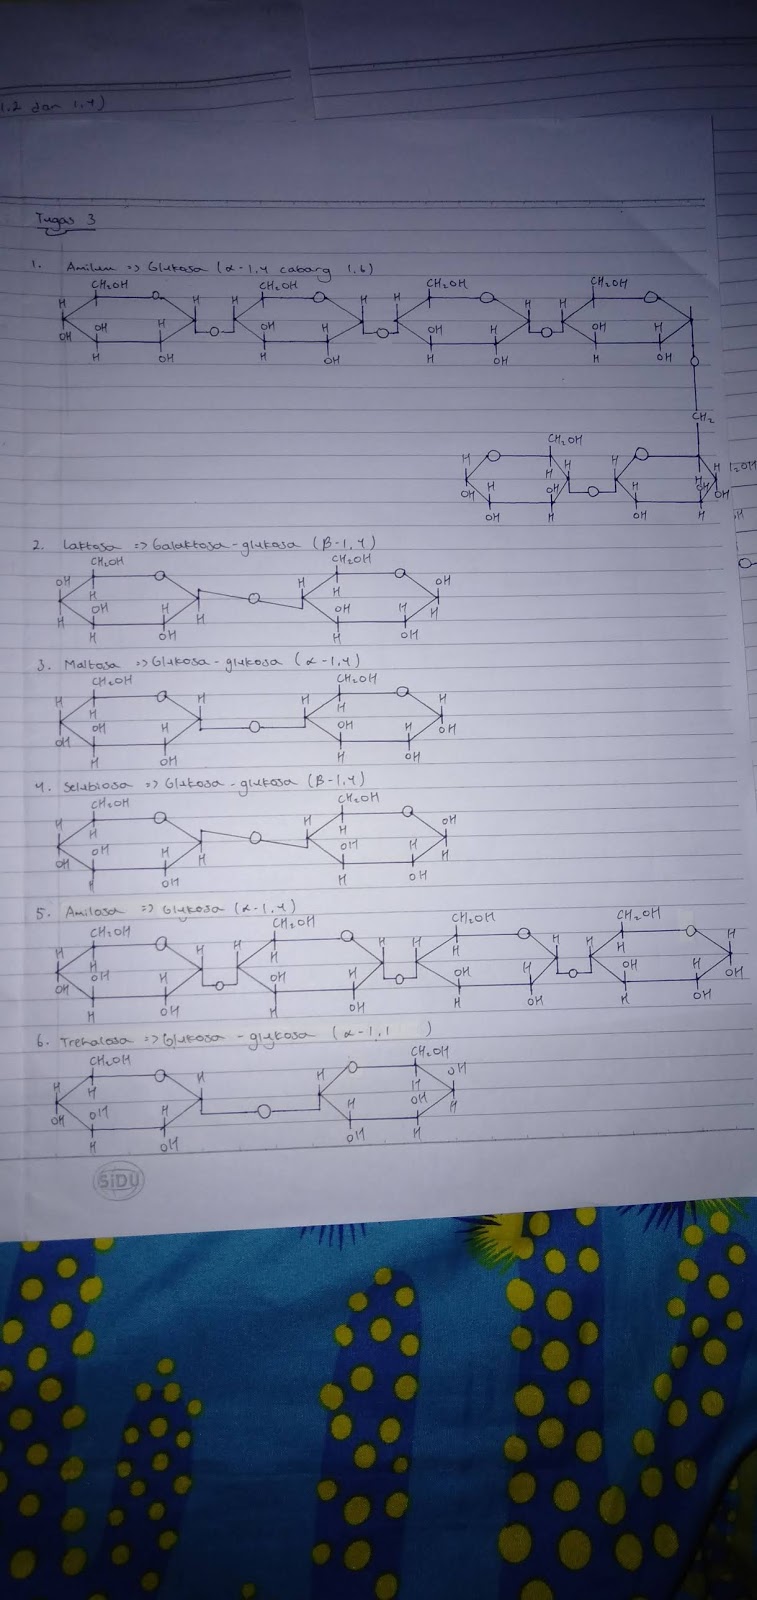 1.2 dan 1.4)
Tugas 3
1. Amilum => Glukosa (α-1,4 cabang 1,6)
CH₂OH CH₂OH CH₂OH CH₂OH
H O H H O H H O H H O
OH OH OH OH
H H H H
OH O O O
H OH H OH H OH H OH
O
CH₂
CH₂OH
H O H H O H
H H
OH H OH H OH OH
O
OH H OH H
2. Laktosa => Galaktosa-glukosa (β-1,4)
CH₂OH CH₂OH
OH O H O OH
H O H
H OH H H OH H H
H OH H OH
3. Maltosa => Glukosa-glukosa (α-1,4)
CH₂OH CH₂OH
H O H H O H
H H
OH OH H O OH H OH
H OH H OH
4. Selubiosa => Glukosa-glukosa (β-1,4)
CH₂OH CH₂OH
H O H O OH
H O H
OH OH H H OH H H
H OH H OH
5. Amilosa => Glukosa (α-1,4)
CH₂OH CH₂OH CH₂OH CH₂OH
H O H H O H H O H H O H
H H H
OH OH H O OH H O OH H O OH H OH
H OH H OH H OH H OH
6. Trehalosa => Glukosa-glukosa (α-1,1 )
CH₂OH CH₂OH
H O H H O OH
H H
OH OH H O H OH H
H OH OH H
SiDU